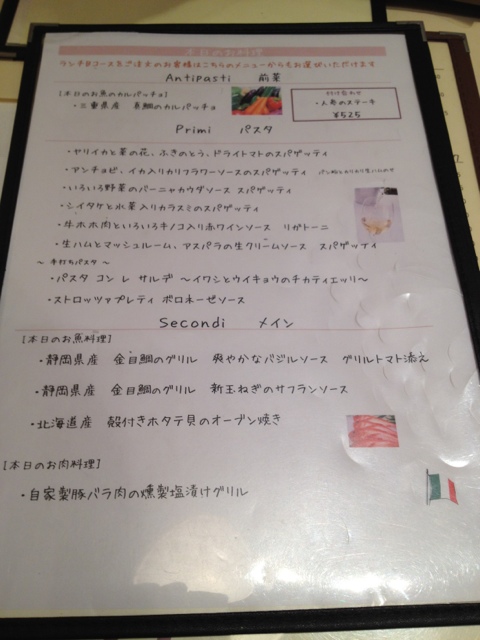 本日のお料理
ランチBコースをご注文のお客様はこちらのメニューからもお選びいただけます
Antipasti 前菜
[本日のお魚のカルパッチョ]
・三重県産 真鯛のカルパッチョ
付け合わせ
・人参のステーキ
¥525
Primi パスタ
・ヤリイカと菜の花、ふきのとう、ドライトマトのスパゲッティ
・アンチョビ、イカ入りカリフラワーソースのスパゲッティ
・いろいろ野菜のバーニャカウダソース スパゲッティ
・シイタケと水菜入りカラスミのスパゲッティ
・牛ホホ肉といろいろキノコ入り赤ワインソース リガトーニ
・生ハムとマッシュルーム、アスパラの生クリームソース スパゲッティ
～ 手打ちパスタ ～
・パスタ コン レ サルデ ～イワシとウイキョウのチカティエッリ～
・ストロッツァプレティ ボロネーゼソース
Secondi メイン
[本日のお魚料理]
・静岡県産 金目鯛のグリル 爽やかなバジルソース グリルトマト添え
・静岡県産 金目鯛のグリル 新玉ねぎのサフランソース
・北海道産 殻付きホタテ貝のオーブン焼き
[本日のお肉料理]
・自家製豚バラ肉の燻製塩漬けグリル